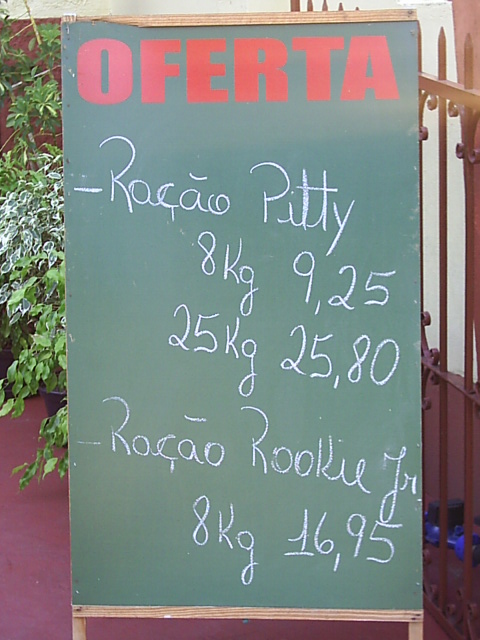 OFERTA
- Ração Pitty
8Kg 9,25
25Kg 25,80
- Ração Rookie Jr
8Kg 16,95